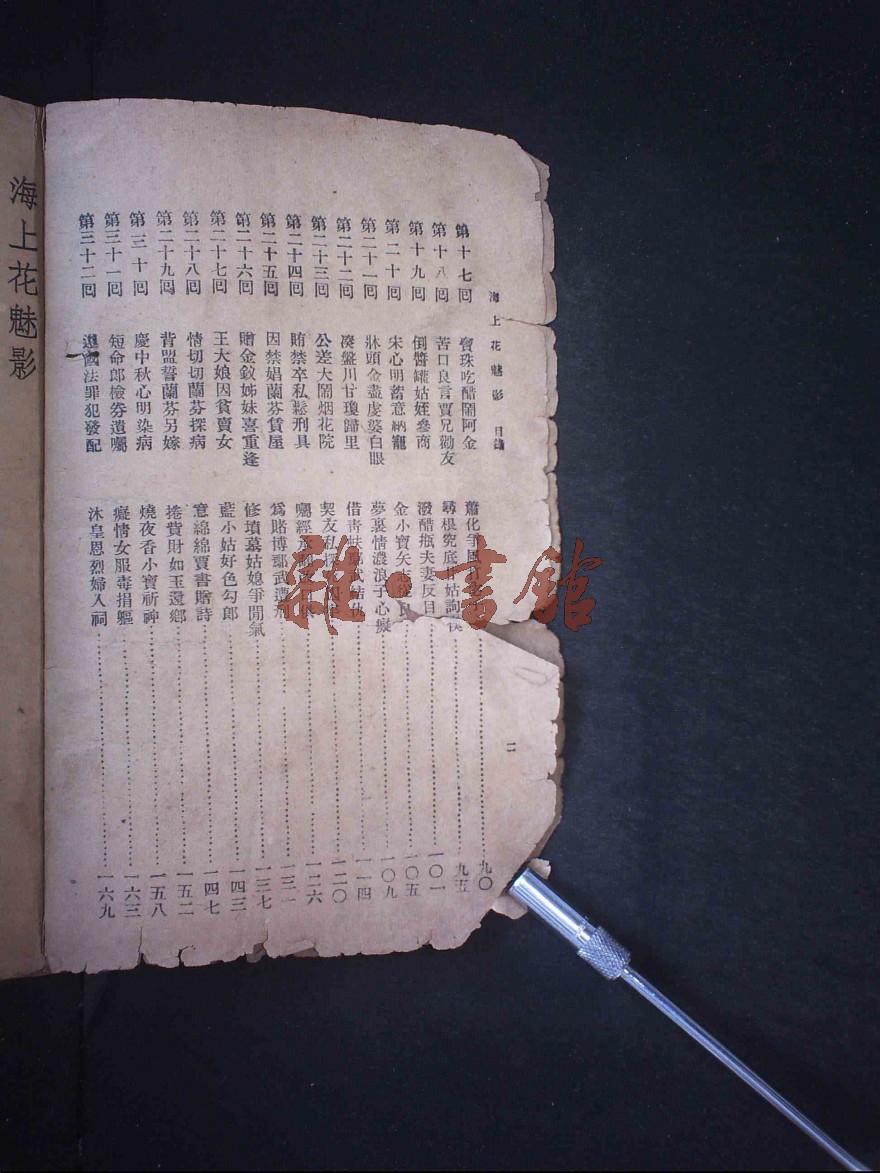 海上花魅影 目錄 二
第十七回 寶珠吃醋鬧阿金 蕭化爭風 九〇
第十八回 苦口良言賈兄勸友 尋根究底甘姑詢 九五
第十九回 倒醬罐姑姪參商 潑醋瓶夫妻反目 一〇一
第二十回 宋心明蓄意納寵 金小寶矢志從 一〇五
第二十一回 牀頭金盡虔婆白眼 夢裏情濃浪子心癡 一〇九
第二十二回 凑盤川甘瓊歸里 借靑蚨鄒武姑 一一四
第二十三回 公差大鬧烟花院 契友私探 一二〇
第二十四回 賄禁卒私鬆刑具 囑經承 一二六
第二十五回 因禁娼蘭芬賃屋 爲賭博鄒武遭刑 一三一
第二十六回 贈金釵姊妹喜重逢 修墳墓姑媳爭閒氣 一三七
第二十七回 王大娘因貧賣女 藍小姑好色勾郎 一四三
第二十八回 情切切蘭芬探病 意綿綿賈書贈詩 一四七
第二十九回 背盟誓蘭芬另嫁 捲貲財如玉還鄉 一五二
第三十回 慶中秋心明染病 燒夜香小寶祈神 一五八
第三十一回 短命郎檢劵遺囑 癡情女服毒捐軀 一六三
第三十二回 遵國法罪犯發配 沐皇恩烈婦入祠 一六九
海上花魅影
雜·書館